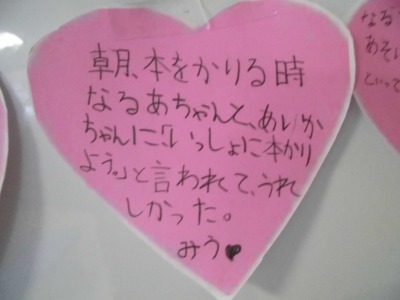 朝、本をかりる時
なるあちゃんと、あいか
ちゃんに「いっしょに本かり
よう。」と言われて、うれ
しかった。
みう♥
なる
あそい
といって